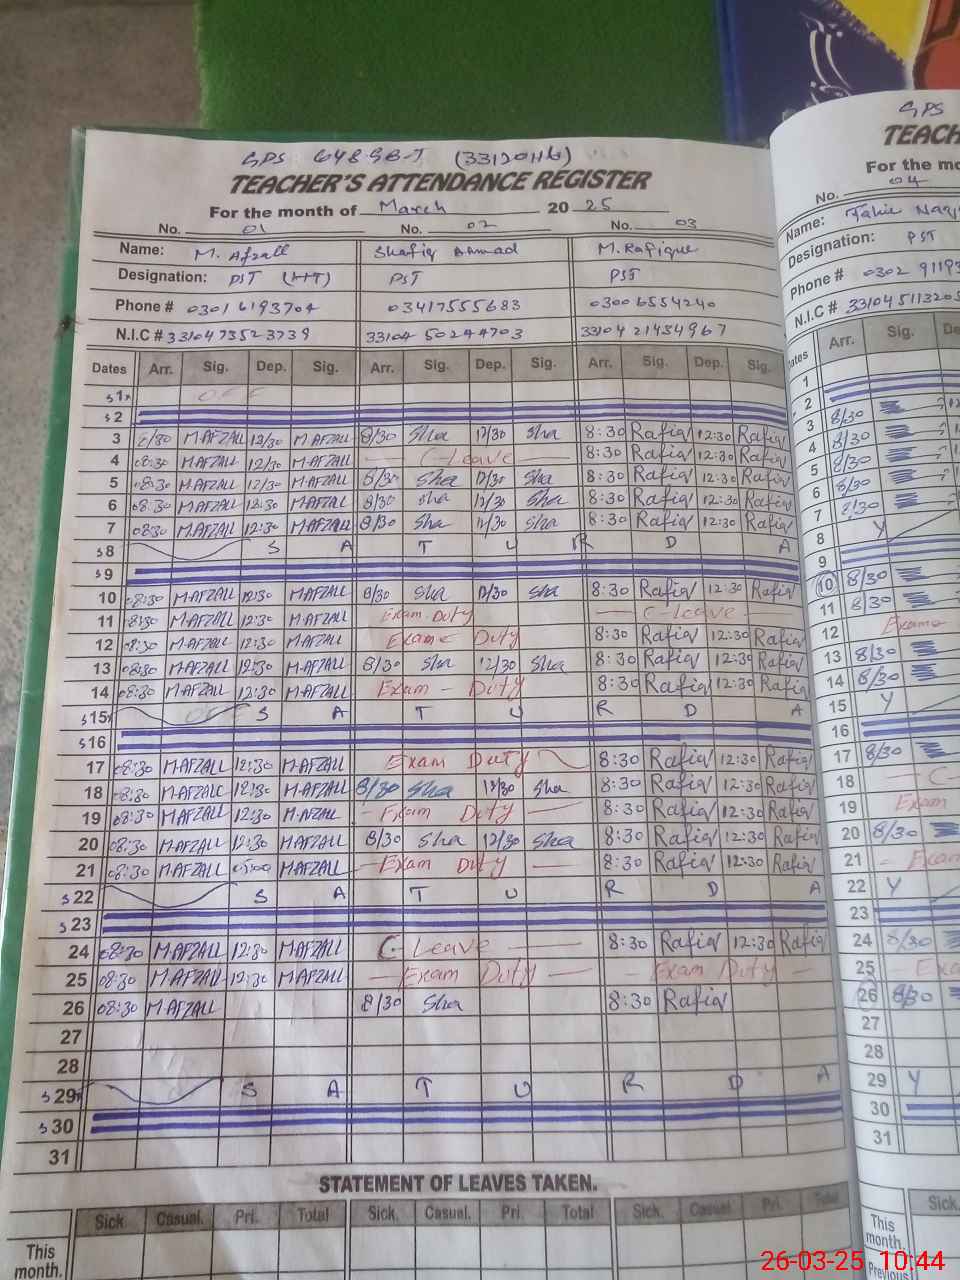 GPS 648 GB-T (33120116)
TEACHER'S ATTENDANCE REGISTER
For the month of March 20 25
No. 01 No. 02 No. 03
Name: M. Afzall Shafiq Ahmad M. Rafique
Designation: PST (HT) PST PST
Phone # 03016193704 03417555683 03006554240
N.I.C # 3310473523739 33104 50244703 33104 21454967
Dates Arr. Sig. Dep. Sig. Arr. Sig. Dep. Sig. Arr. Sig. Dep. Sig.
S1 OFF
S2
3 8/30 M.AFZALL 12/30 M.AFZALL 8/30 Sha 12/30 Sha 8:30 Rafiq 12:30 Rafiq
4 08:30 M.AFZALL 12/30 M.AFZALL C-Leave 8:30 Rafiq 12:30 Rafiq
5 08:30 M.AFZALL 12/30 M.AFZALL 8/30 Sha 12/30 Sha 8:30 Rafiq 12:30 Rafiq
6 08:30 M.AFZALL 12:30 M.AFZALL 8/30 Sha 12/30 Sha 8:30 Rafiq 12:30 Rafiq
7 08:30 M.AFZALL 12:30 M.AFZALL 8/30 Sha 12/30 Sha 8:30 Rafiq 12:30 Rafiq
S8 S A T U R D A
S9
10 08:30 M.AFZALL 12:30 M.AFZALL 8/30 Sha 12/30 Sha 8:30 Rafiq 12:30 Rafiq
11 08:30 M.AFZALL 12:30 M.AFZALL Exam Duty C-Leave
12 08:30 M.AFZALL 12:30 M.AFZALL Exam Duty 8:30 Rafiq 12:30 Rafiq
13 08:30 M.AFZALL 12:30 M.AFZALL 8/30 Sha 12/30 Sha 8:30 Rafiq 12:30 Rafiq
14 08:30 M.AFZALL 12:30 M.AFZALL Exam - Duty 8:30 Rafiq 12:30 Rafiq
S15 OFF S A T U R D A
S16
17 08:30 M.AFZALL 12:30 M.AFZALL Exam Duty 8:30 Rafiq 12:30 Rafiq
18 08:30 M.AFZALL 12:30 M.AFZALL 8/30 Sha 12/30 Sha 8:30 Rafiq 12:30 Rafiq
19 08:30 M.AFZALL 12:30 M.AFZALL - Exam Duty - 8:30 Rafiq 12:30 Rafiq
20 08:30 M.AFZALL 12:30 M.AFZALL 8/30 Sha 12/30 Sha 8:30 Rafiq 12:30 Rafiq
21 08:30 M.AFZALL 05:00 M.AFZALL - Exam Duty - 8:30 Rafiq 12:30 Rafiq
S22 S A T U R D A
S23
24 08:30 M.AFZALL 12:30 M.AFZALL C-Leave 8:30 Rafiq 12:30 Rafiq
25 08:30 M.AFZALL 12:30 M.AFZALL - Exam Duty - - Exam Duty -
26 08:30 M.AFZALL 8/30 Sha 8:30 Rafiq
27
28
S29 S A T U R D A
S30
31
STATEMENT OF LEAVES TAKEN.
Sick. Casual. Pri. Total Sick. Casual. Pri. Total Sick. Casual Pri. Total
This month.
GPS
TEACH
For the mo
No. 04
Name: Tahir
Designation: PST
Phone # 0302 9119
N.I.C # 33104 5113205
Dates Arr. Sig. De
1
2
3 8/30
4 8/30
5 8/30
6 8/30
7 8/30
8 Y
9
10 8/30
11 8/30
12 Exam
13 8/30
14 8/30
15 Y
16
17 8/30
18 - C-
19 Exam
20 8/30
21 - Exam
22 Y
23
24 8/30
25 - Exa
26 8/30
27
28
29 Y
30
31
Sick.
This month.
Previous
26-03-25 10:44